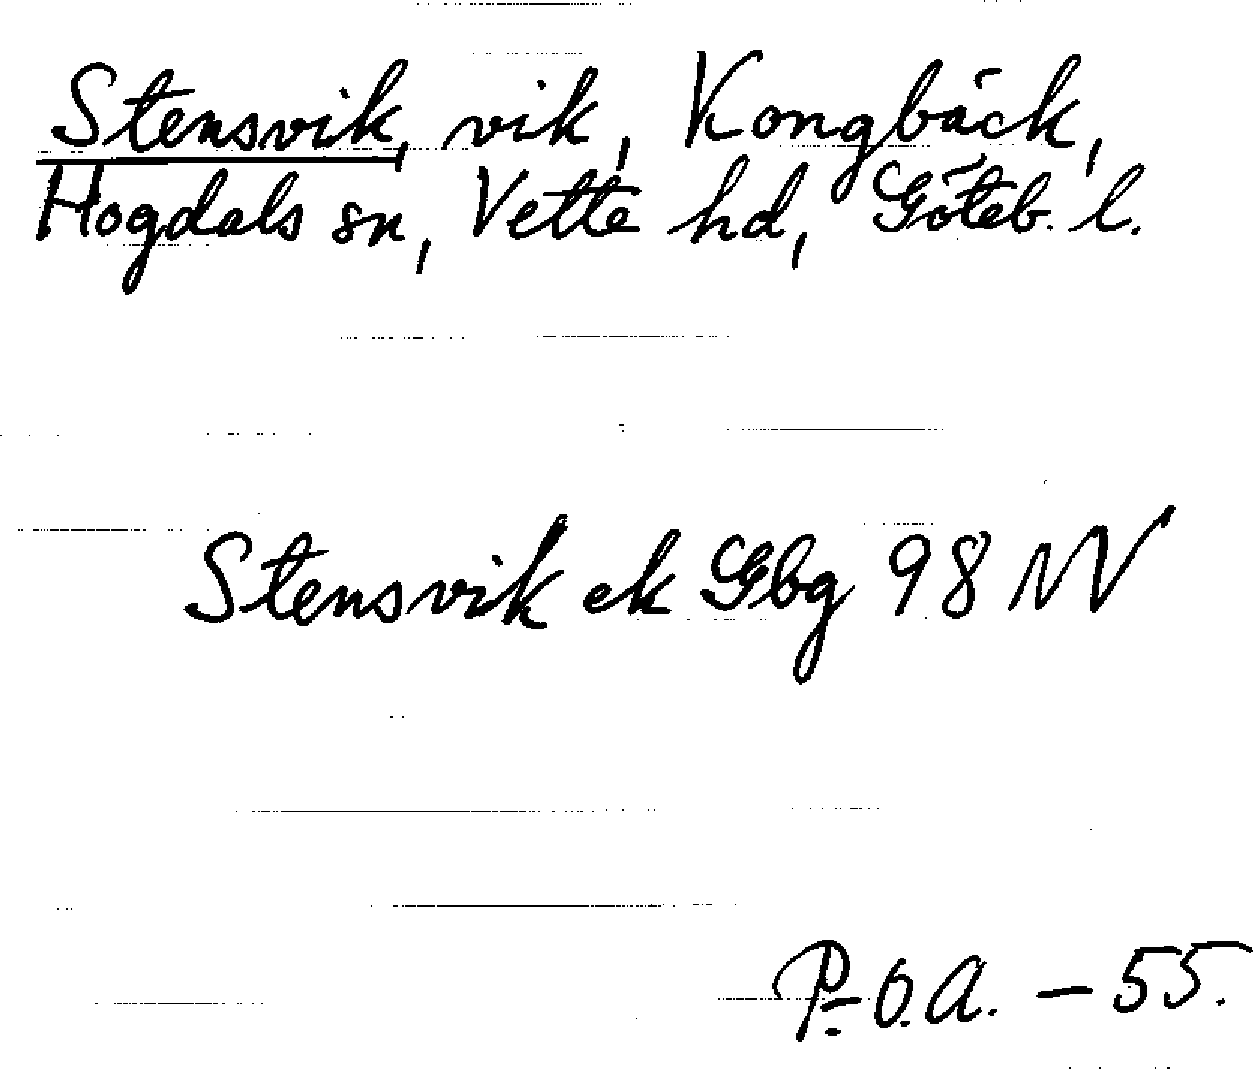 Stensvik, vik, Kongbäck,
Hogdals sn, Vette hd, Göteb. l.
Stensvik ek Gbg 98 NV
P.-O.A. - 55.